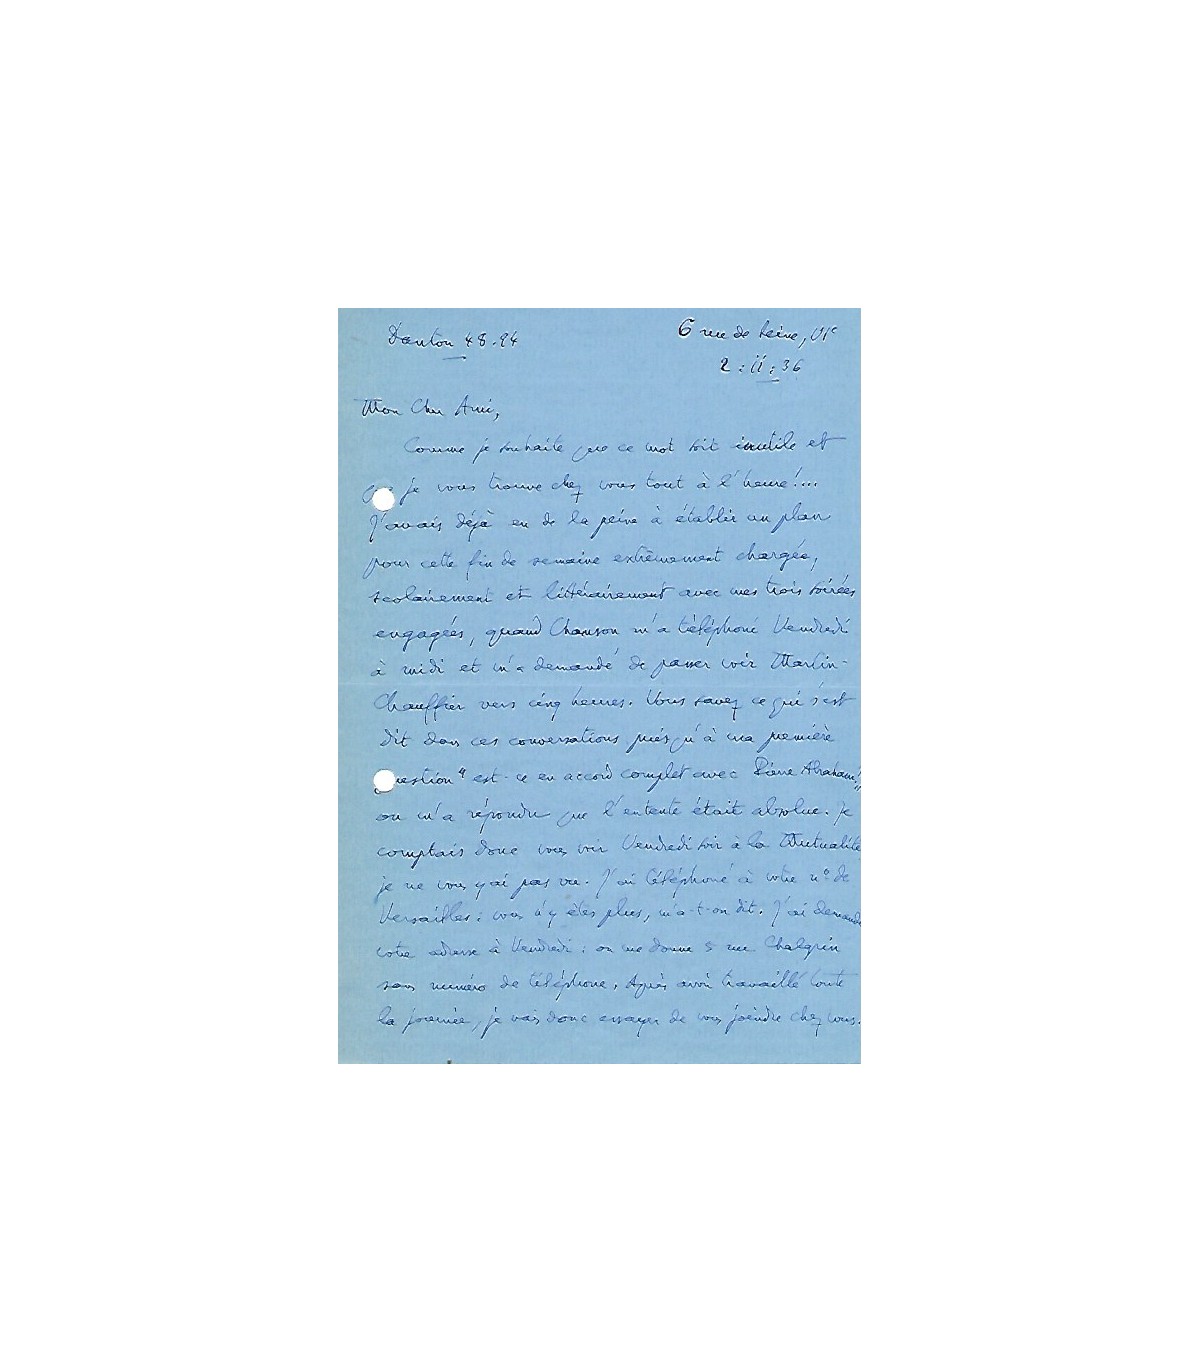 Danton 48.94
6 rue de Seine, VIe
2 : II : 36
Mon Cher Ami,
Comme je souhaite que ce mot soit inutile et
que je vous trouve chez vous tout à l'heure !...
J'avais déjà eu de la peine à établir un plan
pour cette fin de semaine extrêmement chargée,
scolairement et littérairement avec mes trois soirées
engagées, quand Chamson m'a téléphoné Vendredi
à midi et m'a demandé de passer voir Martin-
Chauffier vers cinq heures. Vous savez ce qui s'est
dit dans ces conversations puisqu'à ma première
question "est-ce en accord complet avec Pierre Abraham?"
on m'a répondu que l'entente était absolue. Je
comptais donc vous voir Vendredi soir à la Mutualité
je ne vous y ai pas vu. J'ai téléphoné à votre n° de
Versailles : vous n'y êtes plus, m'a-t-on dit. J'ai demandé
votre adresse à Vendredi : on me donne 5 rue Chalgrin
sans numéro de téléphone. Après avoir travaillé toute
la journée, je vais donc essayer de vous joindre chez vous.